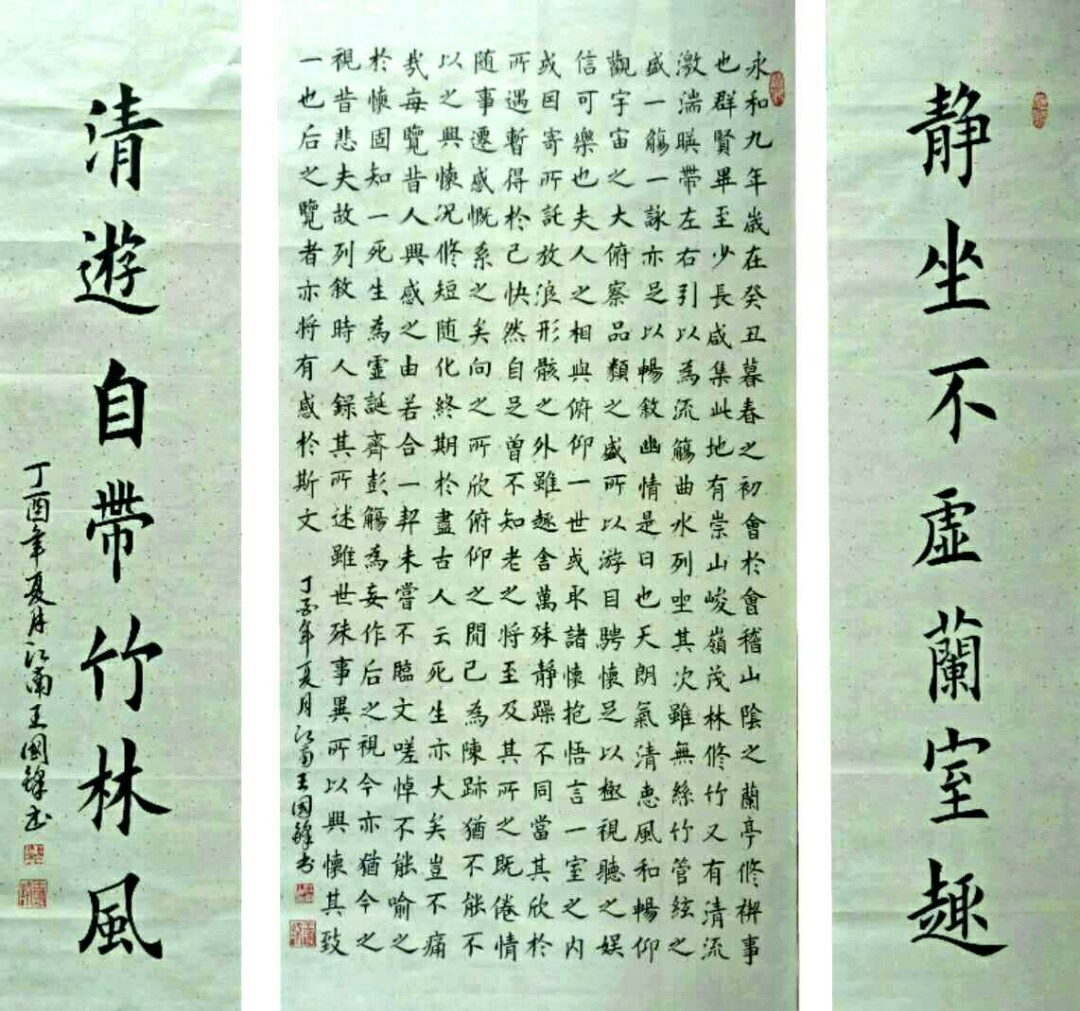 静坐不虛蘭室趣
永和九年歲在癸丑暮春之初會於會稽山陰之蘭亭修禊事
也群賢畢至少長咸集此地有崇山峻嶺茂林修竹又有清流
激湍暎帶左右引以為流觴曲水列坐其次雖無絲竹管絃之
盛一觴一詠亦足以暢敘幽情是日也天朗氣清惠風和暢仰
觀宇宙之大俯察品類之盛所以游目騁懷足以極視聽之娱
信可樂也夫人之相與俯仰一世或取諸懷抱悟言一室之内
或因寄所託放浪形骸之外雖趣舍萬殊静躁不同當其欣於
所遇暫得於己快然自足曾不知老之將至及其所之既倦情
随事遷感慨系之矣向之所欣俯仰之間已為陳跡猶不能不
以之興懷况修短随化終期於盡古人云死生亦大矣豈不痛
哉每覽昔人興感之由若合一契未嘗不臨文嗟悼不能喻之
於懷固知一死生為靈誕齊彭觴為妄作后之視今亦猶今之
視昔悲夫故列敘時人録其所述雖世殊事異所以興懷其致
一也后之覽者亦将有感於斯文
丁酉年夏月江南王國鋒书
清遊自帶竹林風
丁酉年夏月江南王國鋒书